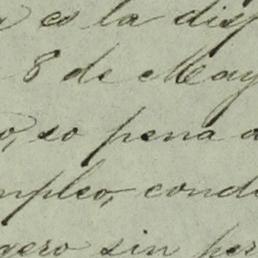 a es la disp
8 de May
o, so pena d
mpleo, cond
gero sin per